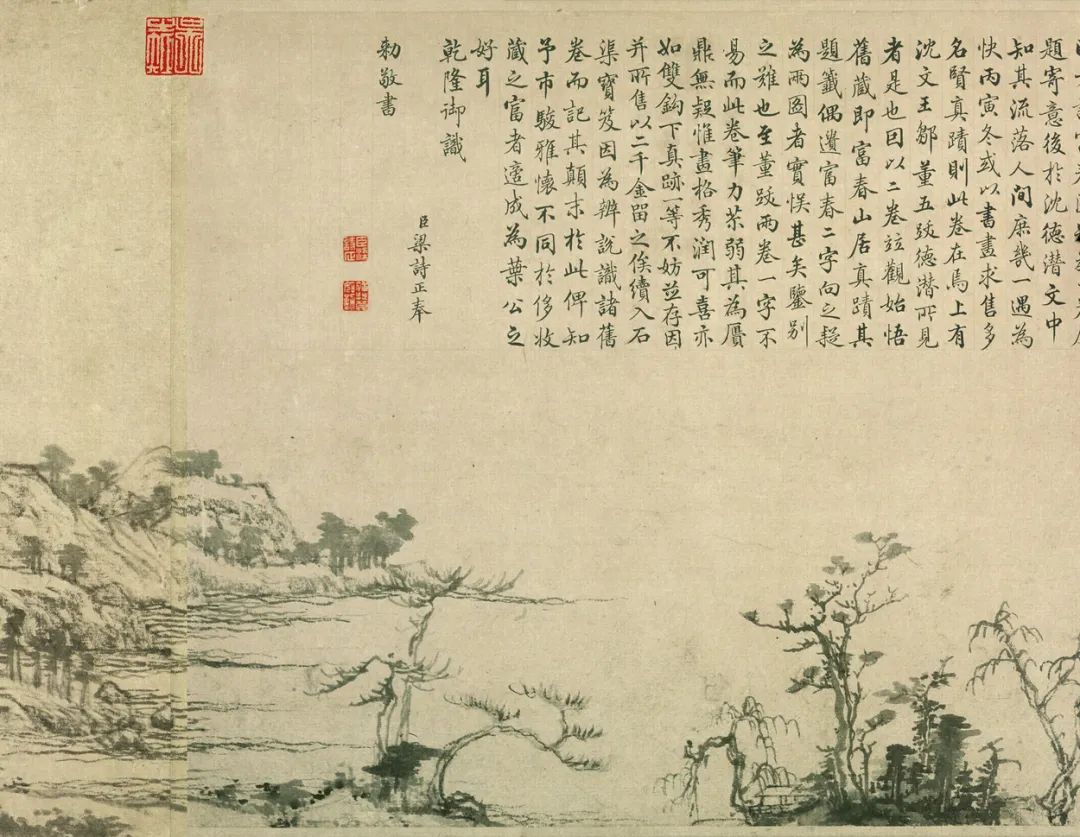 題寄意後於沈德潛文中
知其流落人间庶幾一遇為
快丙寅冬或以書畫求售多
名賢真蹟則此卷在焉上有
沈文王鄒董五跋德潛所見
者是也因以二卷竝觀始悟
舊藏即富春山居真蹟其
題籤偶遺富春二字向之疑
為兩圖者實悮甚矣鑒别
之難也至董跋兩卷一字不
易而此卷筆力苶弱其為贋
鼎無疑惟畫格秀潤可喜亦
如雙鈎下真跡一等不妨竝存因
并所售以二千金留之俟續入石
渠寶笈因為辨說識諸舊
卷而記其顛末於此俾知
予市駿雅懷不同於侈收
藏之富者適成為葉公之
好耳
乾隆御識
臣梁詩正奉
勅敬書